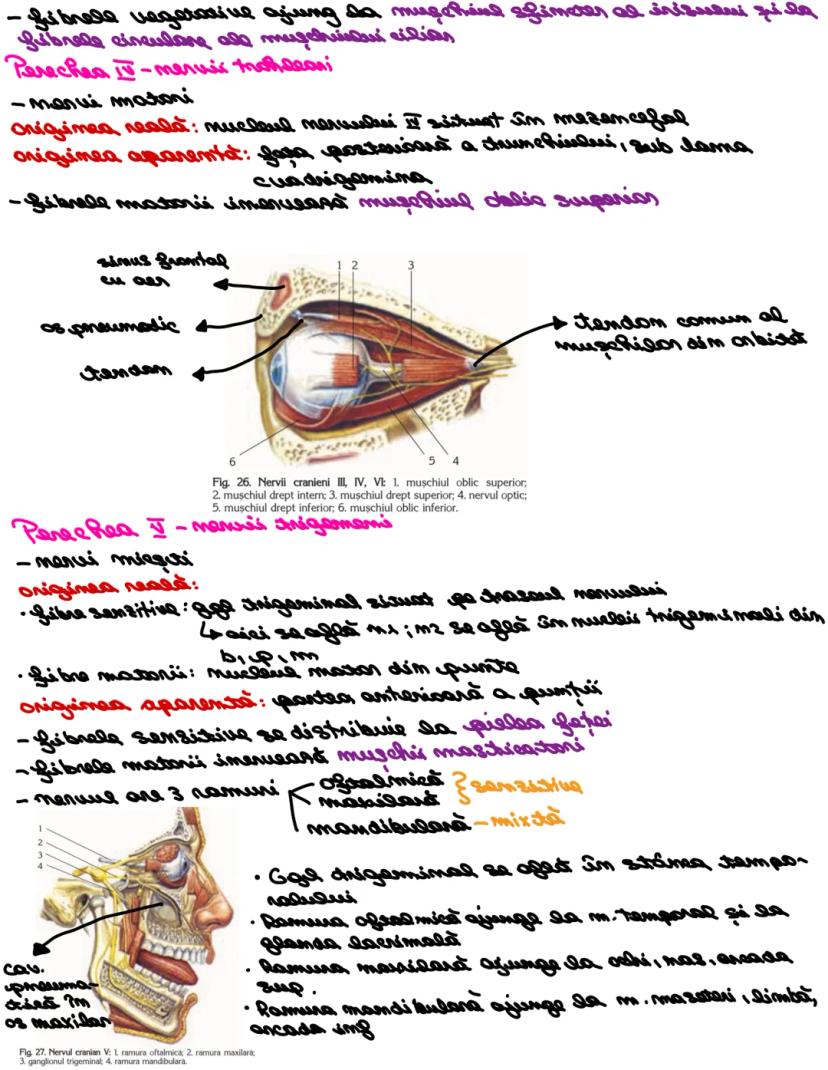 - fibrele vegetative ajung la mușchiul sfincter al irisului și la
fibrele circulare ale mușchiului ciliar
Perechea IV - nervii trohleari
- nervi motori
originea reală: nucleul nervului IV situat în mezencefal
originea aparentă: fața posterioară a trunchiului, sub lama
cuadrigemina
- fibrele motorii inervează mușchiul oblic superior
sinus frontal
cu aer
os pneumatic
tendon
1 2 3
tendon comun al
mușchilor din orbită
6 5 4
Fig. 26. Nervii cranieni III, IV, VI: 1. mușchiul oblic superior;
2. mușchiul drept intern; 3. mușchiul drept superior; 4. nervul optic;
5. mușchiul drept inferior; 6. mușchiul oblic inferior.
Perechea V - nervii trigemeni
- nervi micști
originea reală:
• fibre senzitive: ggl trigeminal situat pe traseul nervului
↳ aici se află n1; n2 se află în nucleii trigeminali din
b, p, m
• fibre motorii: nucleul motor din punte
originea aparentă: partea anterioară a punții
- fibrele senzitive se distribuie la pielea feței
- fibrele motorii inervează mușchii masticatori
- nervul are 3 ramuri
oftalmică
maxilară } senzitive
mandibulară - mixtă
1
2
3
4
cav.
pneuma-
tică în
os maxilar
• Ggl trigeminal se află în stânca tempo-
ralului
• Ramura oftalmică ajunge la m. temporal și la
glanda lacrimală
• Ramura maxilară ajunge la ochi, nas, arcada
sup.
• Ramura mandibulară ajunge la m. maseteri, limbă,
arcada inf
Fig. 27. Nervul cranian V: 1. ramura oftalmică; 2. ramura maxilară;
3. ganglionul trigeminal; 4. ramura mandibulara.